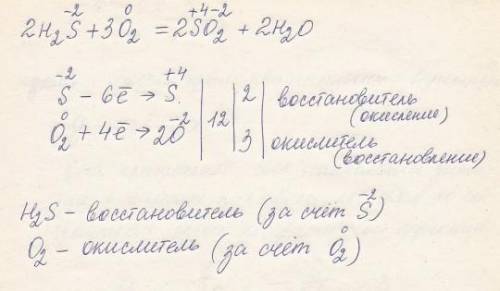 2H₂S⁻² + 3O₂⁰ = 2S⁺⁴O₂⁻² + 2H₂O
S⁻² - 6ē → S⁺⁴ | 12 | 2 | восстановитель (окисление)
O₂⁰ + 4ē → 2O⁻² | 3 | окислитель (восстановление)
H₂S - восстановитель (за счёт S⁻²)
O₂ - окислитель (за счёт O₂⁰)